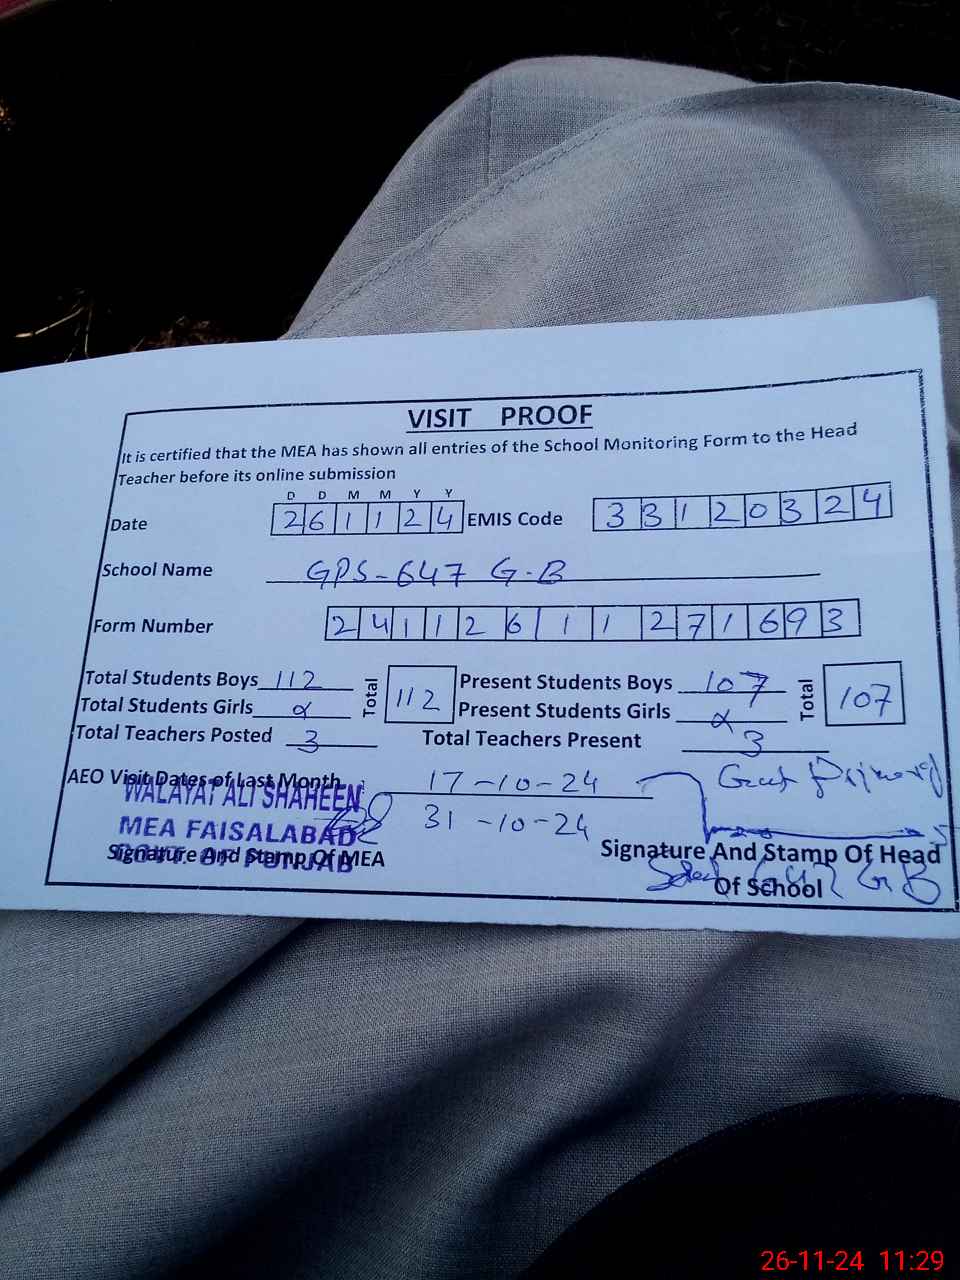 VISIT PROOF
It is certified that the MEA has shown all entries of the School Monitoring Form to the Head
Teacher before its online submission
D D M M Y Y
Date 2 6 1 1 2 4 EMIS Code 3 3 1 2 0 3 2 4
School Name GPS-647 G-B
Form Number 2 4 1 1 2 6 1 1 2 7 1 6 9 3
Total Students Boys 112 Total 112 Present Students Boys 107 Total 107
Total Students Girls Present Students Girls
Total Teachers Posted 3 Total Teachers Present 3
AEO Visit Dates of Last Month 17-10-24
31-10-24
WALAYAT ALI SHAHEEN
MEA FAISALABAD
GOVT. OF PUNJAB
Signature And Stamp Of MEA
Govt Primary
Signature And Stamp Of Head
Of School
647 GB
26-11-24 11:29